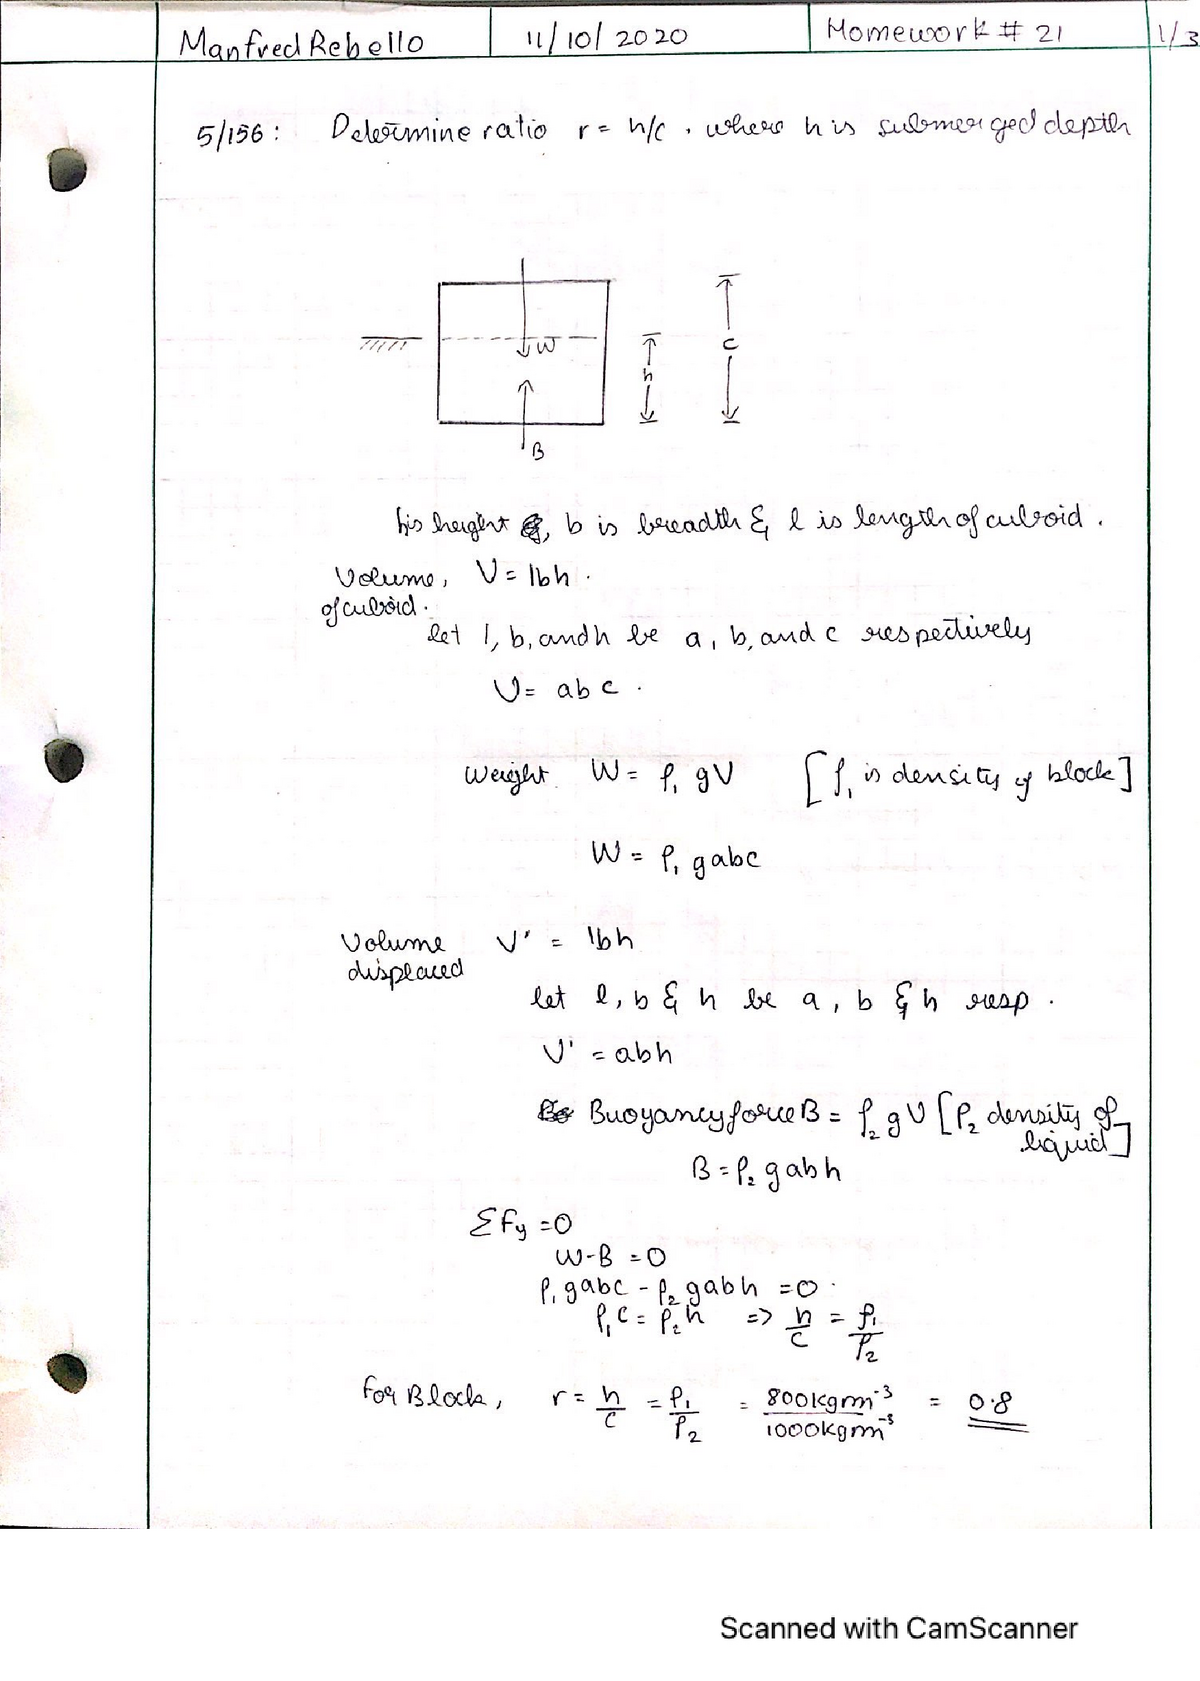 Manfred Rebello 11/10/2020 Homework # 21 1/3
5/156: Determine ratio r = h/c, where h is submerged depth
W
h
c
B
h is height, b is breadth & l is length of cuboid.
Volume, V = lbh.
of cuboid.
let l, b, and h be a, b, and c respectively
V = abc.
Weight W = ρ₁ gV [ρ₁ is density of block]
W = ρ₁ gabc
Volume V' = lbh
displaced
let l, b & h be a, b & h resp.
V' = abh
Buoyancy force B = ρ₂ gV [ρ₂ density of
liquid]
B = ρ₂ gabh
ΣFy = 0
W-B = 0
ρ₁ gabc - ρ₂ gabh = 0.
ρ₁c = ρ₂h => h/c = ρ₁/ρ₂
For Block, r = h/c = ρ₁/ρ₂ = 800kgm⁻³/1000kgm⁻³ = 0.8
Scanned with CamScanner